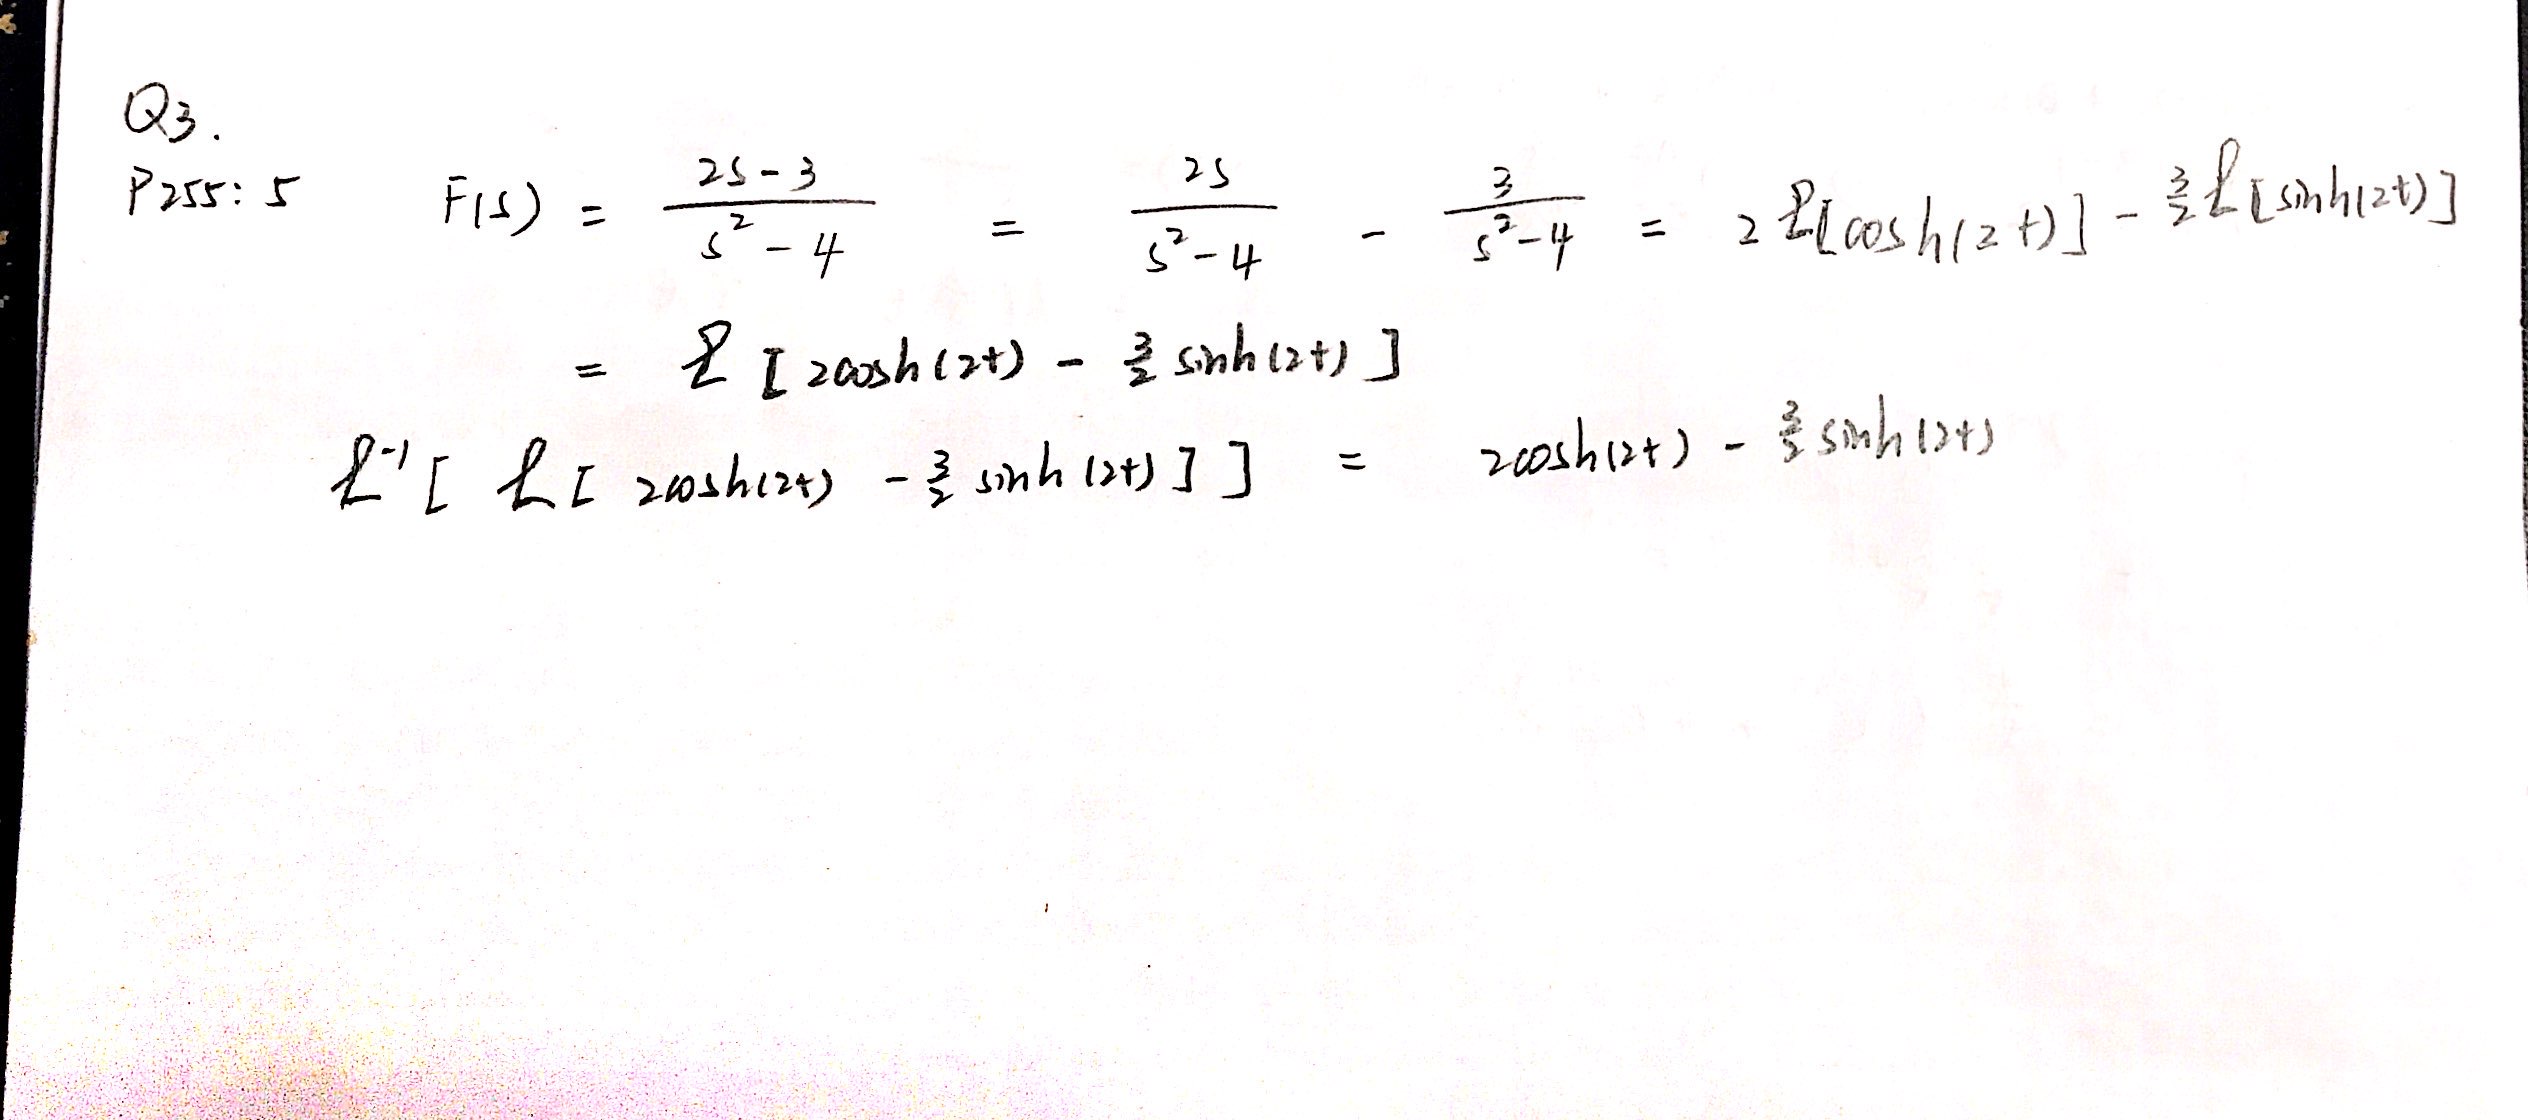 Q3.
P255: 5 F(s) = \frac{2s-3}{s^2-4} = \frac{2s}{s^2-4} - \frac{3}{s^2-4} = 2 ℒ[cosh(2t)] - \frac{3}{2} ℒ[sinh(2t)]
= ℒ [2cosh(2t) - \frac{3}{2} sinh(2t)]
ℒ^{-1}[ ℒ[ 2cosh(2t) - \frac{3}{2} sinh(2t)]] = 2cosh(2t) - \frac{3}{2} sinh(2t)